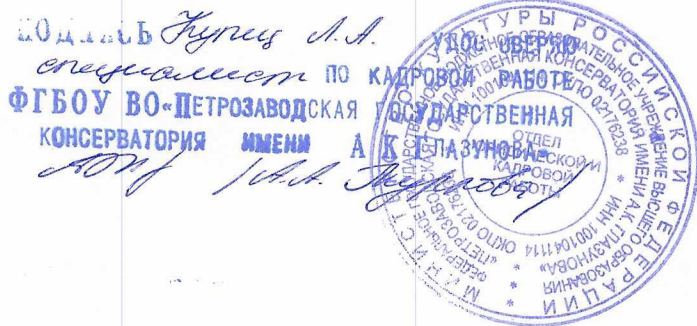 ПОДПИСЬ Купец Л.А. УДОСТОВЕРЯЮ
специалист ПО КАДРОВОЙ РАБОТЕ
ФГБОУ ВО «ПЕТРОЗАВОДСКАЯ ГОСУДАРСТВЕННАЯ
КОНСЕРВАТОРИЯ ИМЕНИ А К ГЛАЗУНОВА»
/А.А.
МИНИСТЕРСТВО КУЛЬТУРЫ РОССИЙСКОЙ ФЕДЕРАЦИИ
ФЕДЕРАЛЬНОЕ ГОСУДАРСТВЕННОЕ БЮДЖЕТНОЕ ОБРАЗОВАТЕЛЬНОЕ УЧРЕЖДЕНИЕ ВЫСШЕГО ОБРАЗОВАНИЯ
«ПЕТРОЗАВОДСКАЯ ГОСУДАРСТВЕННАЯ КОНСЕРВАТОРИЯ ИМЕНИ А.К. ГЛАЗУНОВА»
* ИНН 1001041114 ОКПО 02176238 *
ОТДЕЛ
КАДРОВОЙ
РАБОТЫ